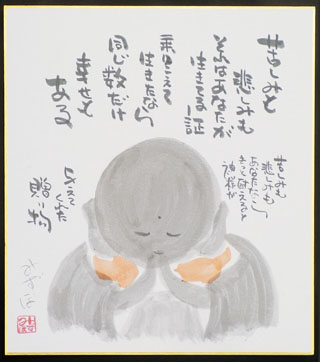 苦しみも
悲しみも
それはあなたが
生きてる証
乗りこえて
生きたなら
同じ数だけ
幸せも
ある
苦しみも
悲しみも
あなたなら
きっと
神様が
与えて
くれた
贈り物